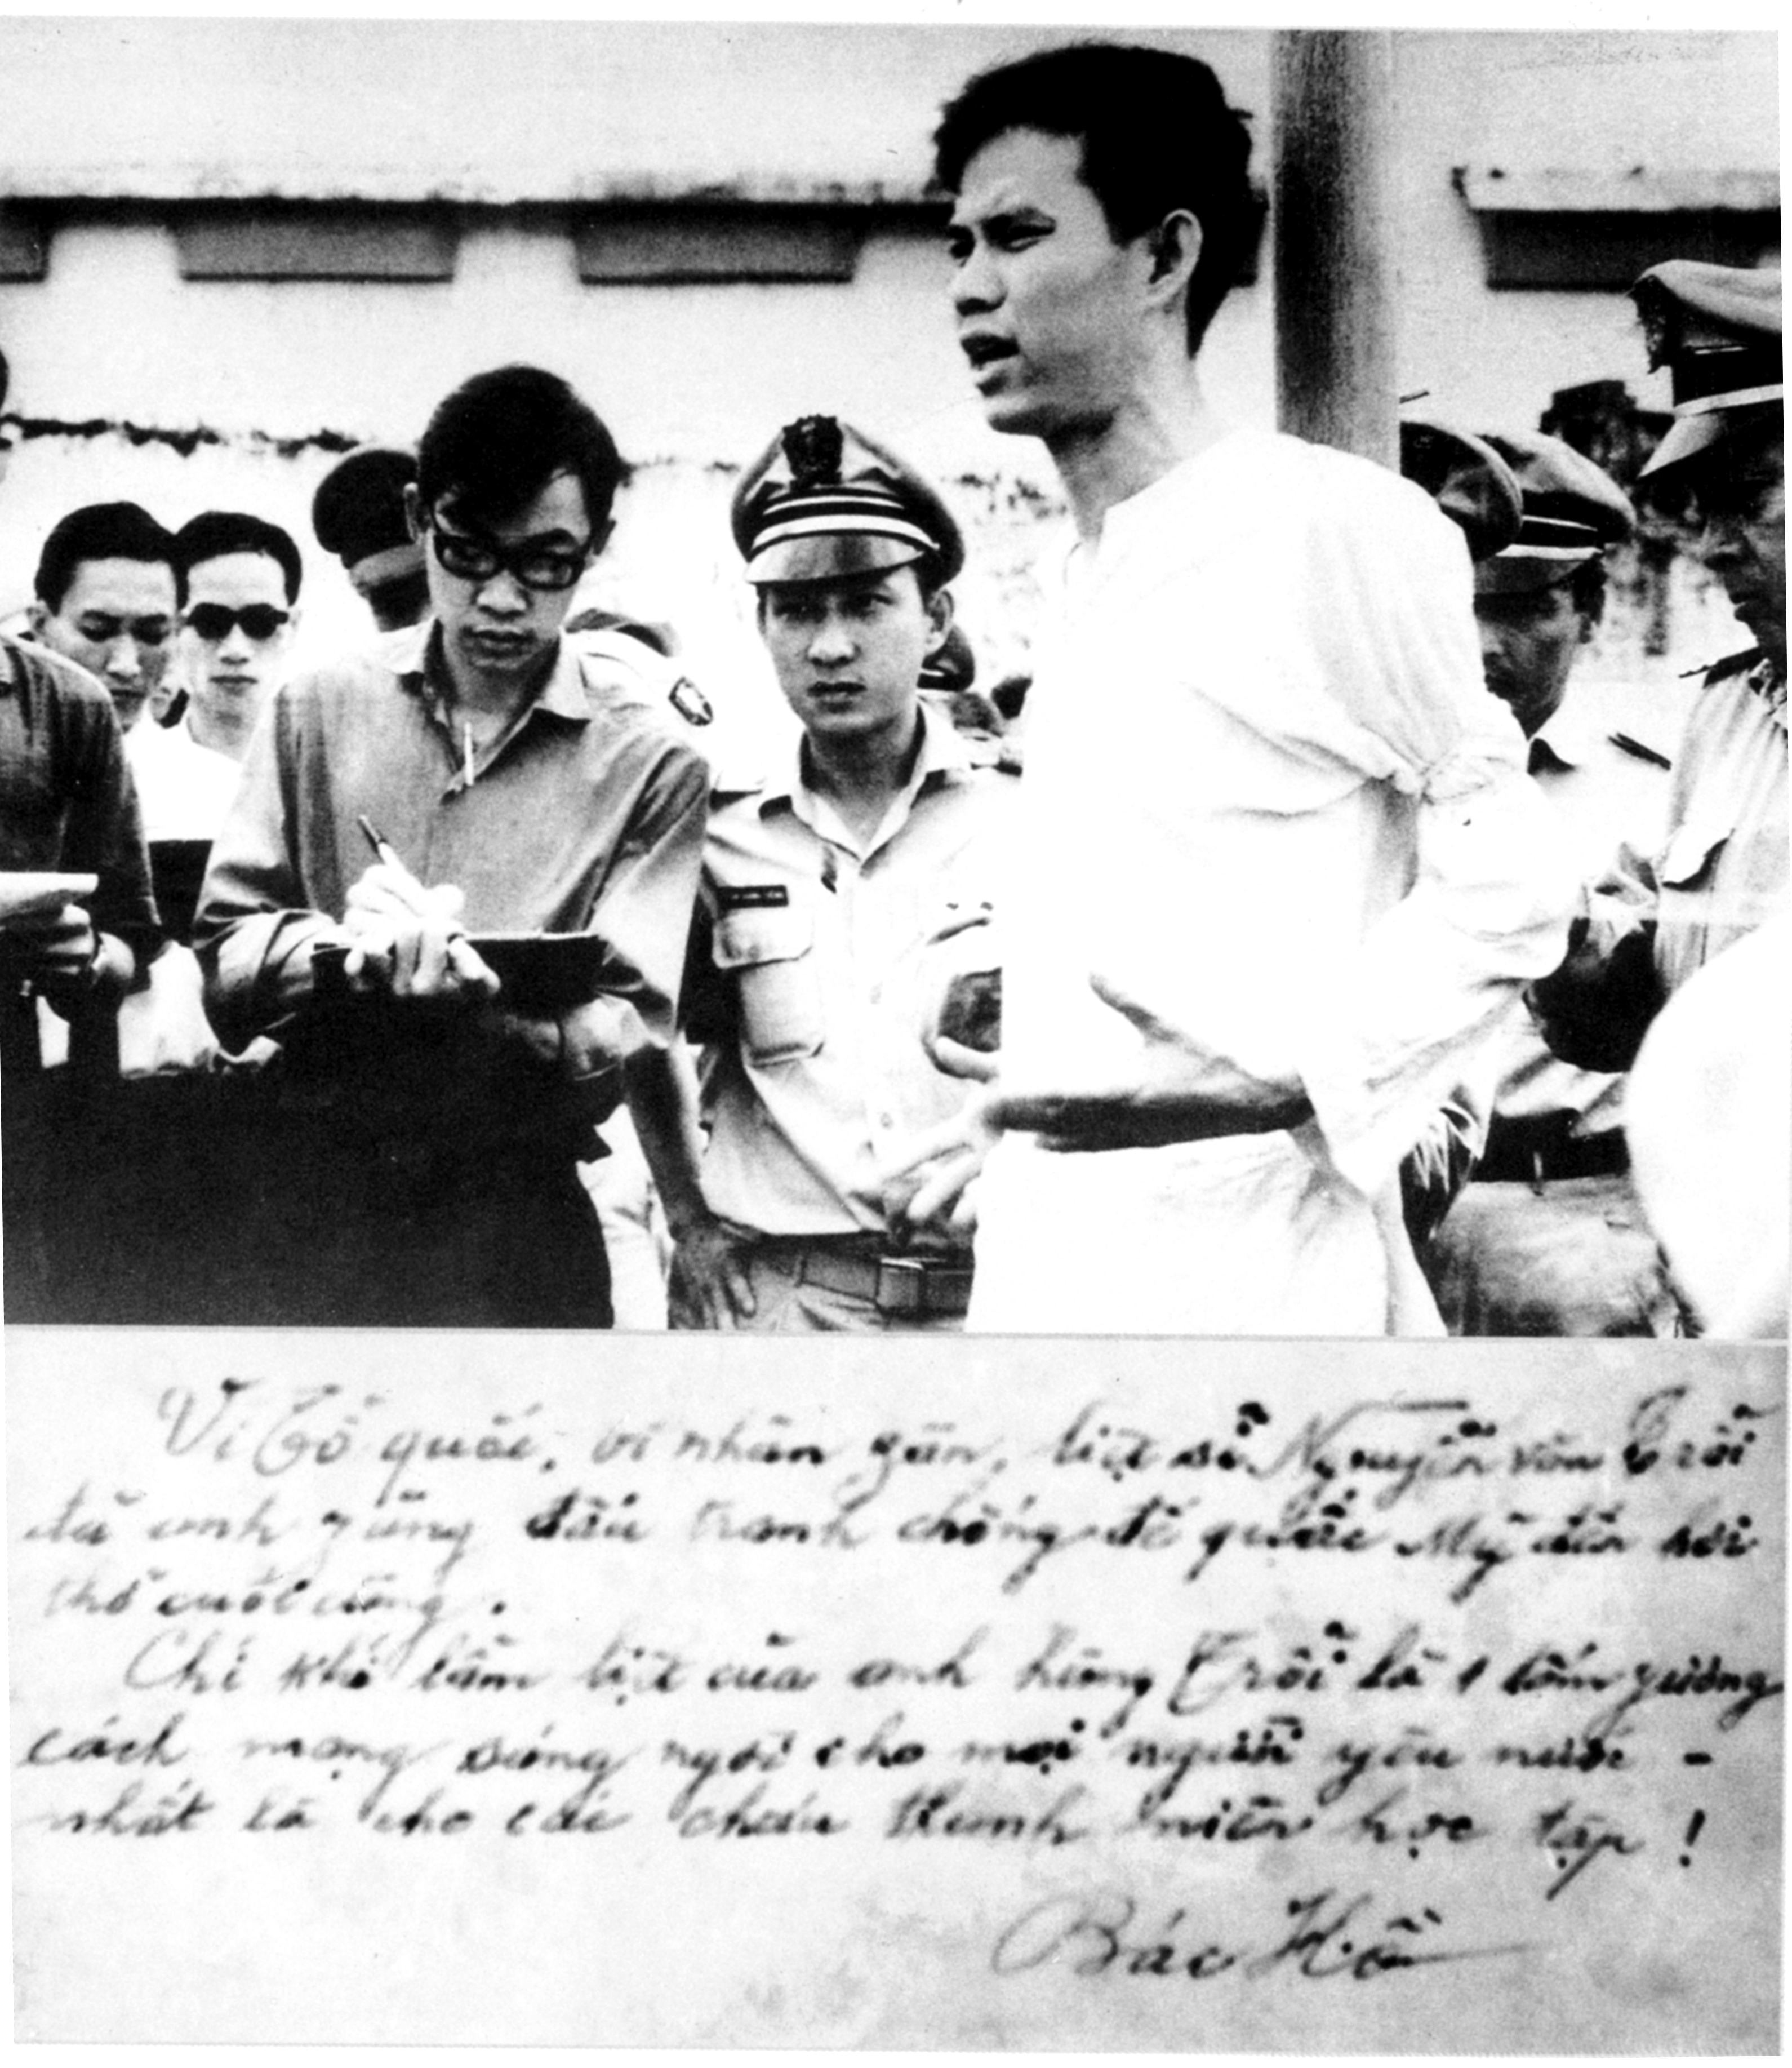 Vì Tổ quốc, vì nhân zân, liệt sỉ Nguyễn văn Trỗi
đã anh zũng đấu tranh chống đế quốc Mỹ đến hơi
thở cuối cùng.
Chí khí lẫm liệt của anh hùng Trỗi là 1 tấm gương
cách mạng sáng ngời cho mọi người yêu nước -
nhất là cho các cháu thanh niên học tập !
Bác Hồ